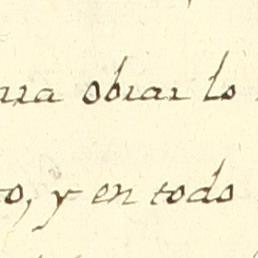 obrar lo
to, y en todo